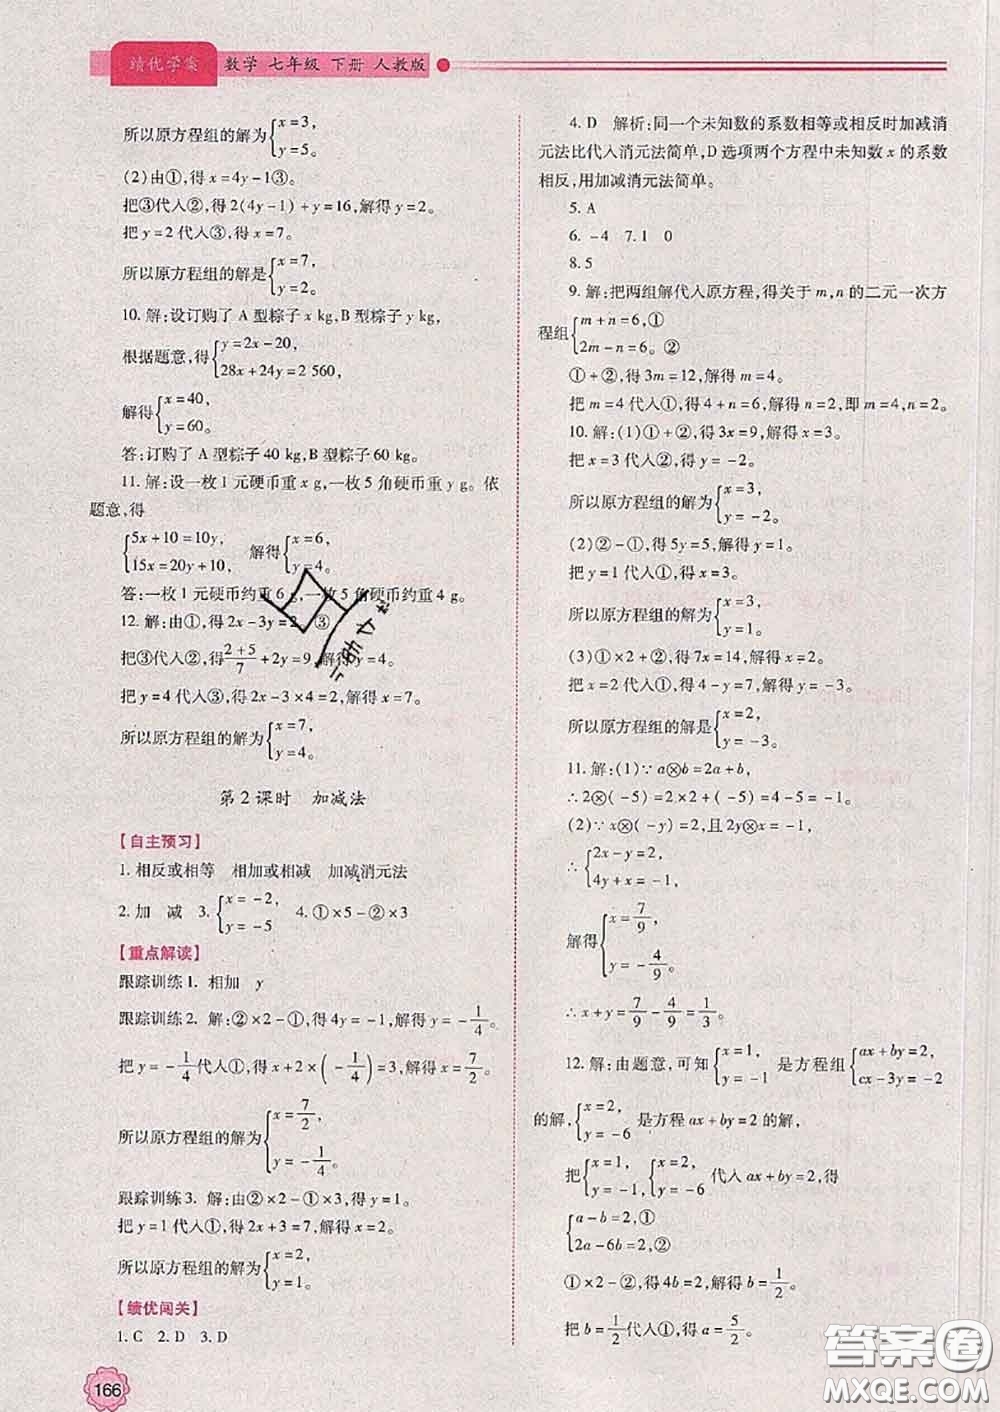 绩优学案 数学 七年级 下册 人教版
所以原方程组的解为{x=3, y=5。
(2)由①,得 x=4y-1③。
把③代入②,得 2(4y-1)+y=16,解得 y=2。
把 y=2 代入③,得 x=7。
所以原方程组的解是{x=7, y=2。
10. 解:设订购了 A 型粽子 x kg,B 型粽子 y kg,
根据题意,得{y=2x-20, 28x+24y=2 560,
解得{x=40, y=60。
答:订购了 A 型粽子 40 kg,B 型粽子 60 kg。
11. 解:设一枚 1 元硬币重 x g,一枚 5 角硬币重 y g。依
题意,得
{5x+10=10y, 15x=20y+10, 解得{x=6, y=4。
答:一枚 1 元硬币约重 6 g,一枚 5 角硬币约重 4 g。
12. 解:由①,得 2x-3y=2。③
把③代入②,得(2+5)/7+2y=9,解得 y=4。
把 y=4 代入③,得 2x-3×4=2,解得 x=7。
所以原方程组的解为{x=7, y=4。
第 2 课时 加减法
【自主预习】
1. 相反或相等 相加或相减 加减消元法
2. 加 减 3. {x=-2, y=-5 4. ①×5-②×3
【重点解读】
跟踪训练1. 相加 y
跟踪训练2. 解:②×2-①,得 4y=-1,解得 y=-1/4。
把 y=-1/4 代入①,得 x+2×(-1/4)=3,解得 x=7/2。
所以原方程组的解为{x=7/2, y=-1/4。
跟踪训练3. 解:由②×2-①×3,得 y=1。
把 y=1 代入①,得 2x+3=7,解得 x=2。
所以原方程组的解为{x=2, y=1。
【绩优闯关】
1. C 2. D 3. D
166
4. D 解析:同一个未知数的系数相等或相反时加减消
元法比代入消元法简单,D 选项两个方程中未知数 x 的系数
相反,用加减消元法简单。
5. A
6. -4 7. 1 0
8. 5
9. 解:把两组解代入原方程,得关于 m,n 的二元一次方
程组{m+n=6,① 2m-n=6。②
①+②,得 3m=12,解得 m=4。
把 m=4 代入①,得 4+n=6,解得 n=2,即 m=4,n=2。
10. 解:(1)①+②,得 3x=9,解得 x=3。
把 x=3 代入②,得 y=-2。
所以原方程组的解为{x=3, y=-2。
(2)②-①,得 5y=5,解得 y=1。
把 y=1 代入①,得 x=3。
所以原方程组的解为{x=3, y=1。
(3)①×2+②,得 7x=14,解得 x=2。
把 x=2 代入①,得 4-y=7,解得 y=-3。
所以原方程组的解是{x=2, y=-3。
11. 解:(1)∵a⊗b=2a+b,
∴2⊗(-5)=2×2+(-5)=4-5=-1。
(2)∵x⊗(-y)=2,且 2y⊗x=-1,
∴{2x-y=2, 4y+x=-1,
解得{x=7/9, y=-4/9。
∴x+y=7/9-4/9=1/3。
12. 解:由题意,可知{x=1, y=-1 是方程组{ax+by=2, cx-3y=-2
的解,{x=2, y=-6 是方程 ax+by=2 的解,
把{x=1, y=-1,{x=2, y=-6 代入 ax+by=2,得
{a-b=2,① 2a-6b=2。②
①×2-②,得 4b=2,解得 b=1/2。
把 b=1/2 代入①,得 a=5/2。
答案圈
MXQE.COM